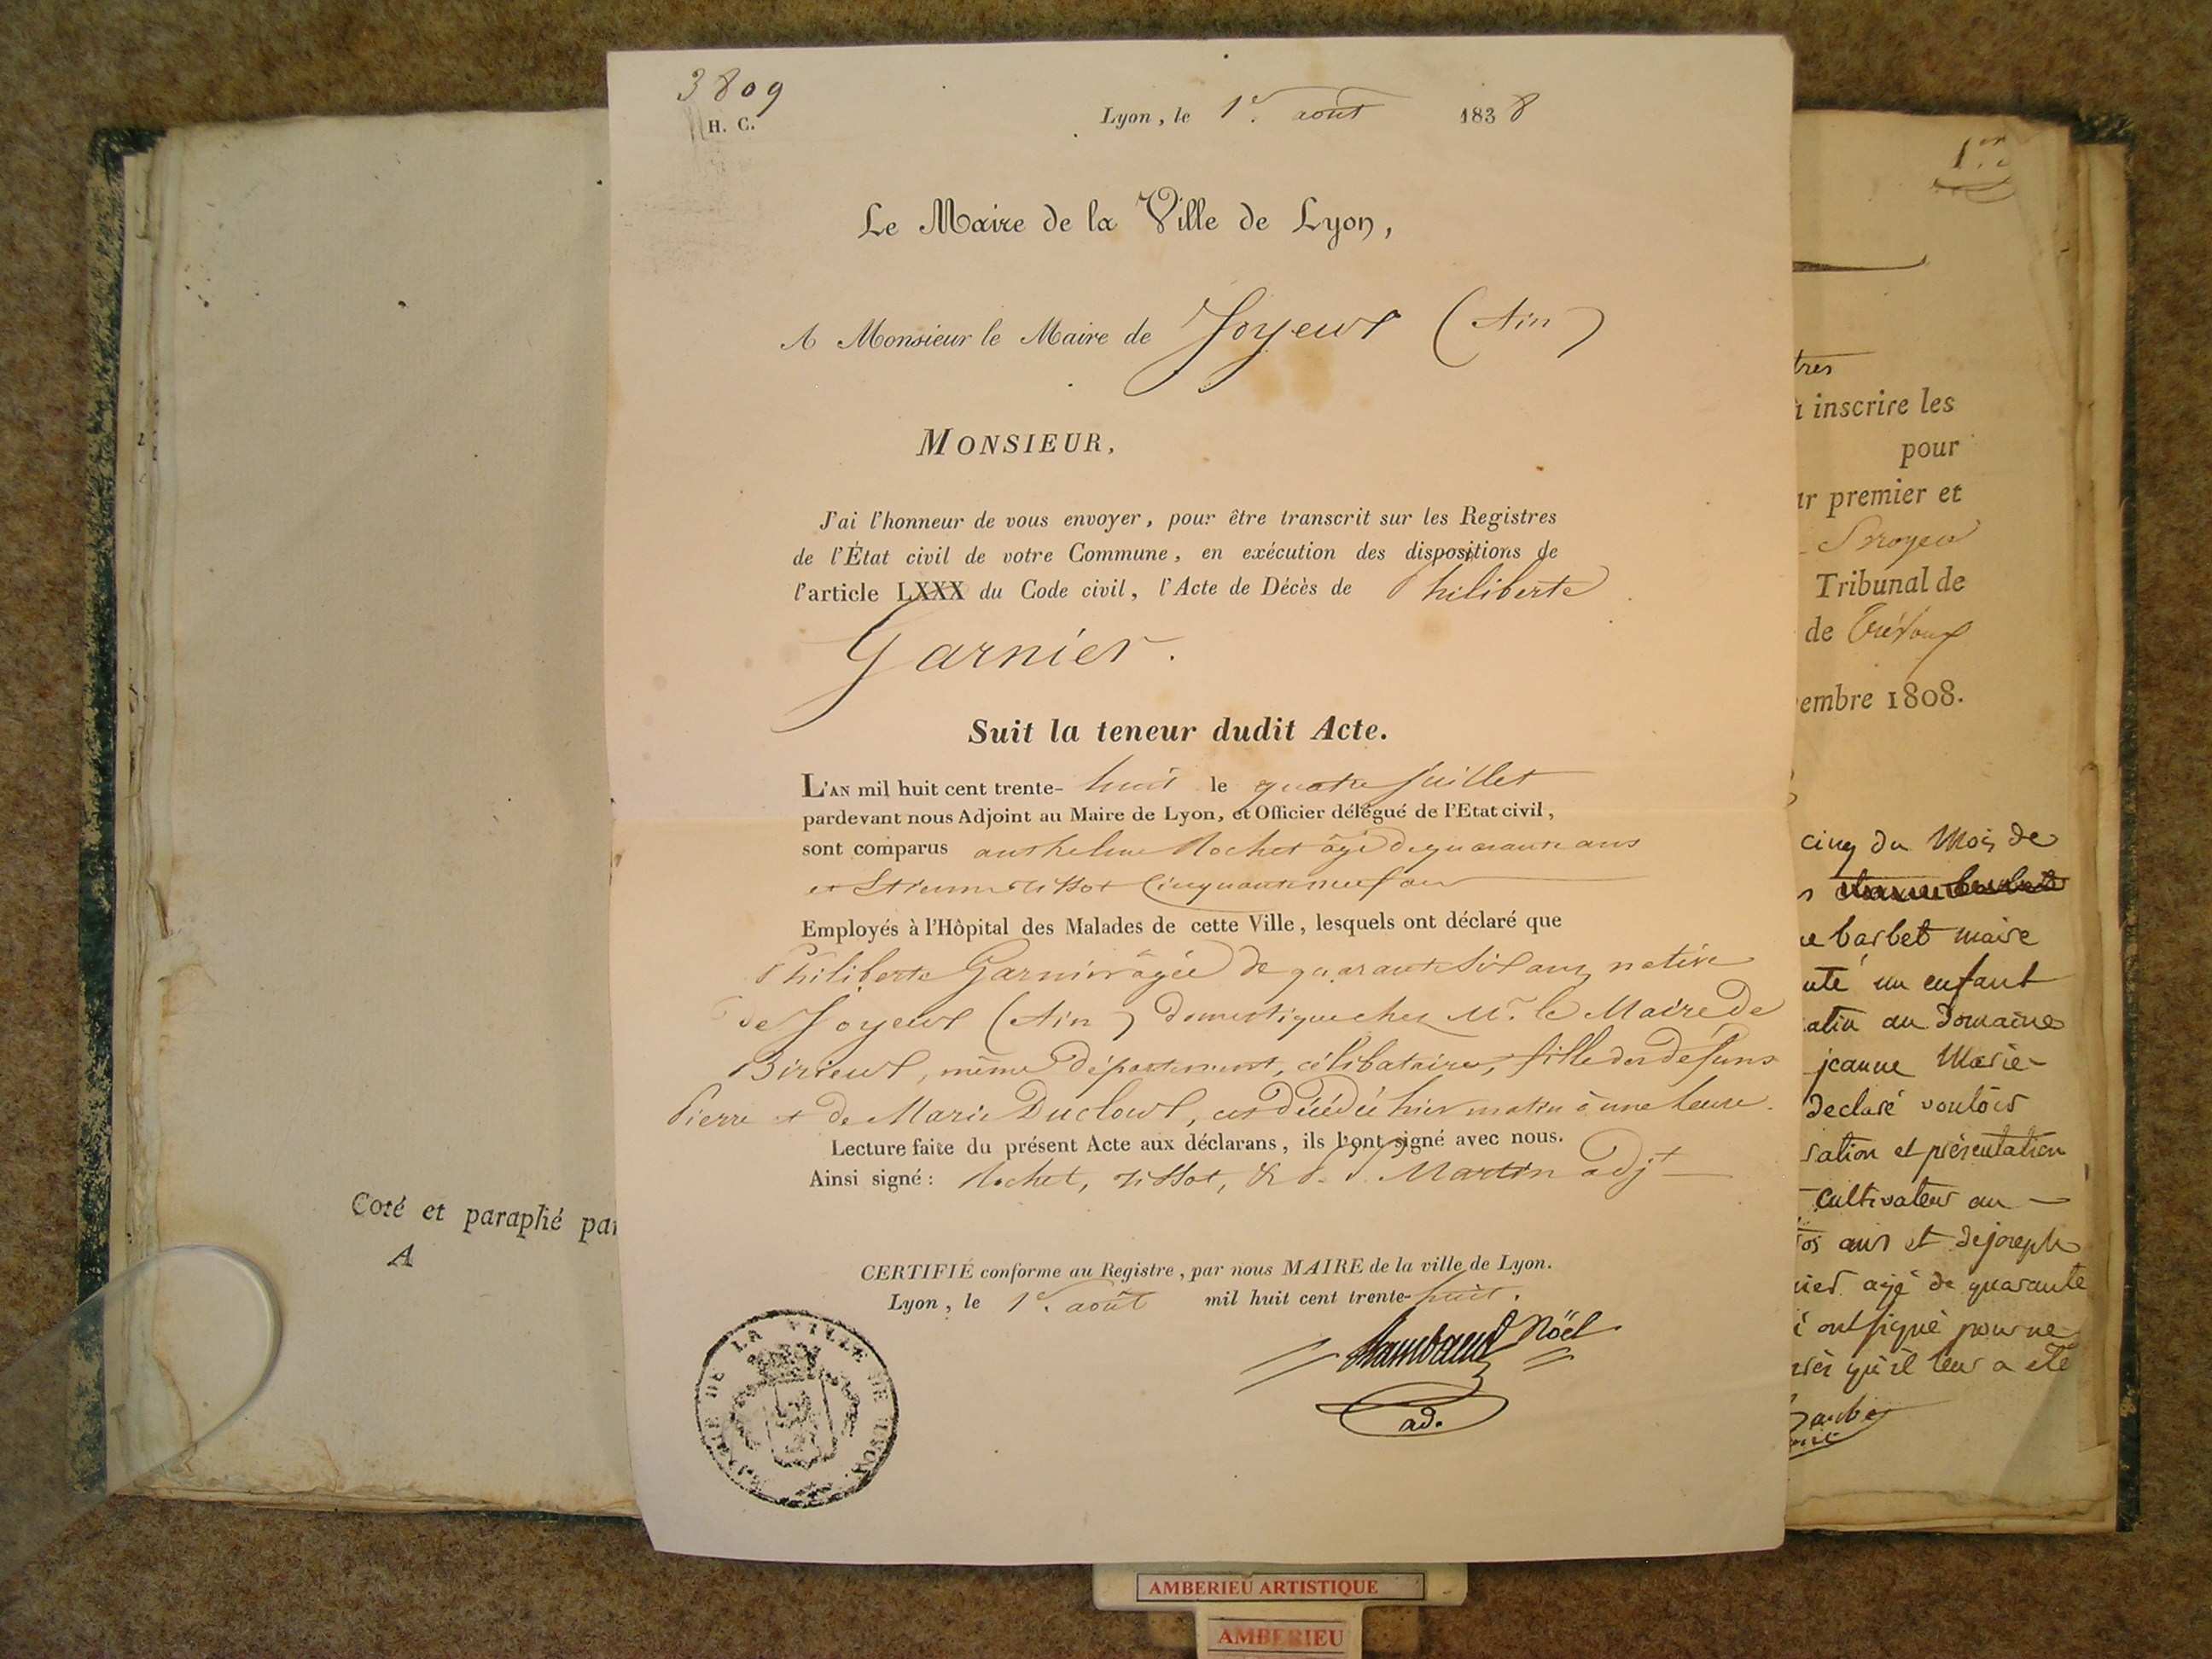 3809
H. C.
Lyon, le 1er. août 1838
Le Maire de la Ville de Lyon,
A Monsieur le Maire de Joyeux (Ain)
MONSIEUR,
J'ai l'honneur de vous envoyer, pour être transcrit sur les Registres
de l'État civil de votre Commune, en exécution des dispositions de
l'article LXXX du Code civil, l'Acte de Décès de Philiberte
Garnier.
Suit la teneur dudit Acte.
L'AN mil huit cent trente-huit le quatre Juillet
pardevant nous Adjoint au Maire de Lyon, et Officier délégué de l'Etat civil,
sont comparus anthelme Rochet âgé de quarante ans
et Etienne tissot Cinquante neuf ans
Employés à l'Hôpital des Malades de cette Ville, lesquels ont déclaré que
Philiberte Garnier âgée de quarante six ans, native
de Joyeux (Ain) domestique chez Mr. le Maire de
Birieux, même département, célibataire, fille des défuns
Pierre et de Marie Ducloux, est décédée hier matin à une heure.
Lecture faite du présent Acte aux déclarans, ils l'ont signé avec nous.
Ainsi signé : Rochet, tissot, & Martin adjt
CERTIFIÉ conforme au Registre, par nous MAIRE de la ville de Lyon.
Lyon, le 1er. août mil huit cent trente-huit.
Rambaud Nöel
ad.
MAIRIE DE LA VILLE DE LYON
Coté et paraphé par
A
1er
tres
à inscrire les
pour
ar premier et
Tribunal de
de Trévoux
embre 1808.
cinq du Mois de
barbet maire
uté un enfant
atin au Domaine
jeanne Marie
declaré vouloir
sation et présentation
cultivateur au
ans et de joseph
nier agé de quarante
ont signé pour ne
qu'il leur a été
AMBERIEU ARTISTIQUE
AMBERIEU